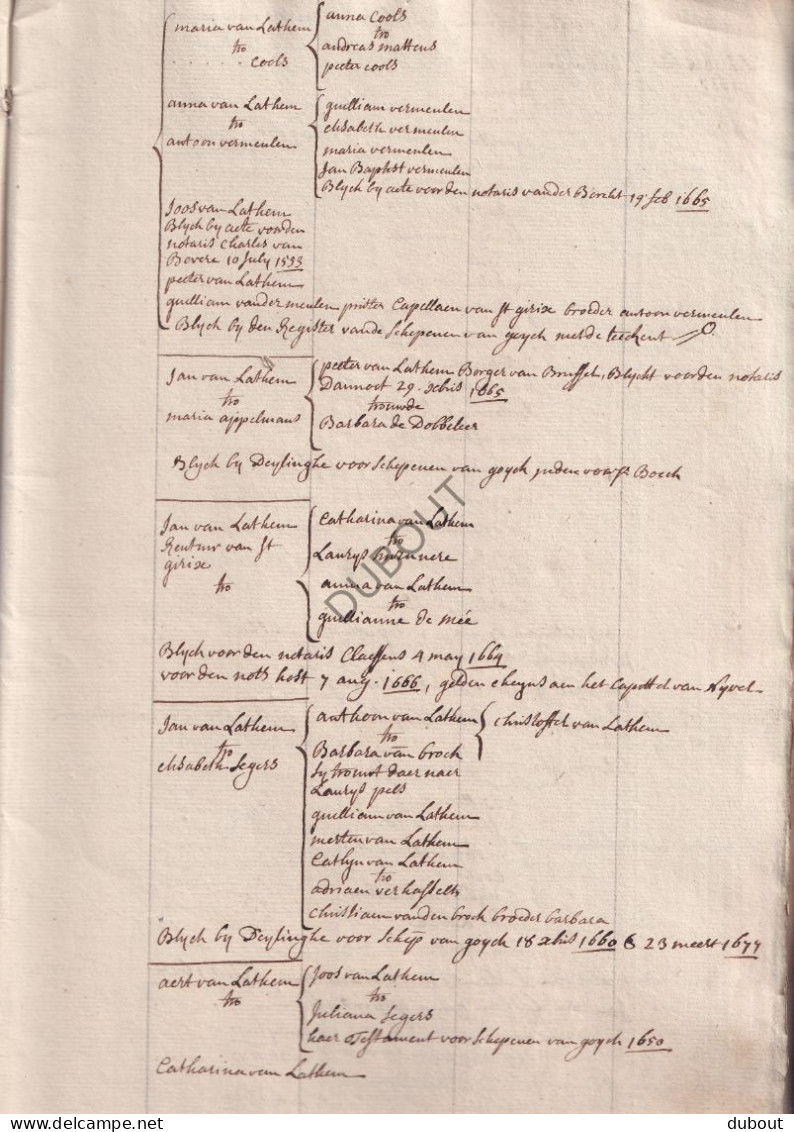 maria van Lathem
tro
cools
anna cools
tro
andreas mattens
peeter cools
anna van Lathem
tro
antoon vermeulen
guilliam vermeulen
elisabeth vermeulen
maria vermeulen
Jan Baptist vermeulen
Blijck by acte voor den notaris vander Borcht 19 feb 1665
Joos van Lathem
Blijck by acte voorden
notaris Charles van
Bevere 10 July 1593
peeter van Lathem
guilliam vander meulen prister Capellaen van St girixe broeder antoon vermeulen
Blyck by den Register vande schepenen van goyck met de teecken
Jan van Lathem
tro
maria appelmans
peeter van Lathem Borger van Brussel, Blyckt voor den notaris
Dannoot 29 xbris 1665
troude
Barbara de Dobbeleer
Blyck by Deylinghe voor schepenen van goyck Boeck
Jan van Lathem
Rentmr van St
girixe
tro
Catharina van Lathem
tro
Lauryß
anna van Lathem
tro
guillianne de mée
Blyck voor den notaris Claessens 4 may 1664
voor den nots host 7 aug. 1666, gelden cheyns aen het Capittel van Nyvel
Jan van Lathem
tro
elisabeth segers
anthoon van Lathem
tro
Barbara van broeck
sy trouwt daer naer
Lauryß pels
guilliam van Lathem
merten van Lathem
Catlyn van Lathem
tro
adriaen verhasselt
christiaen vanden broeck broeder barbara
christoffel van Lathem
Blyck by Deylinghe voor Schep van goyck 18 xbris 1660 & 23 meert 1677
aert van Lathem
tro
Joos van Lathem
tro
Juliana segers
haer Testament voor schepenen van goyck 1650
Catharina van Lathem
DUBOUT
dubout
dubout.com